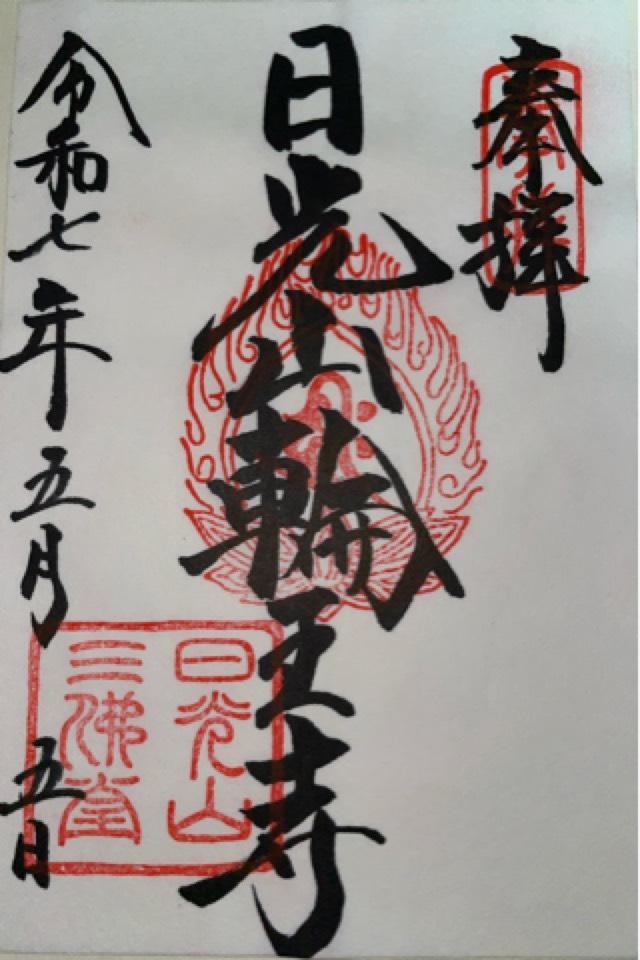 奉拝
日光山輪王寺
日光山
三佛堂
令和七年五月五日